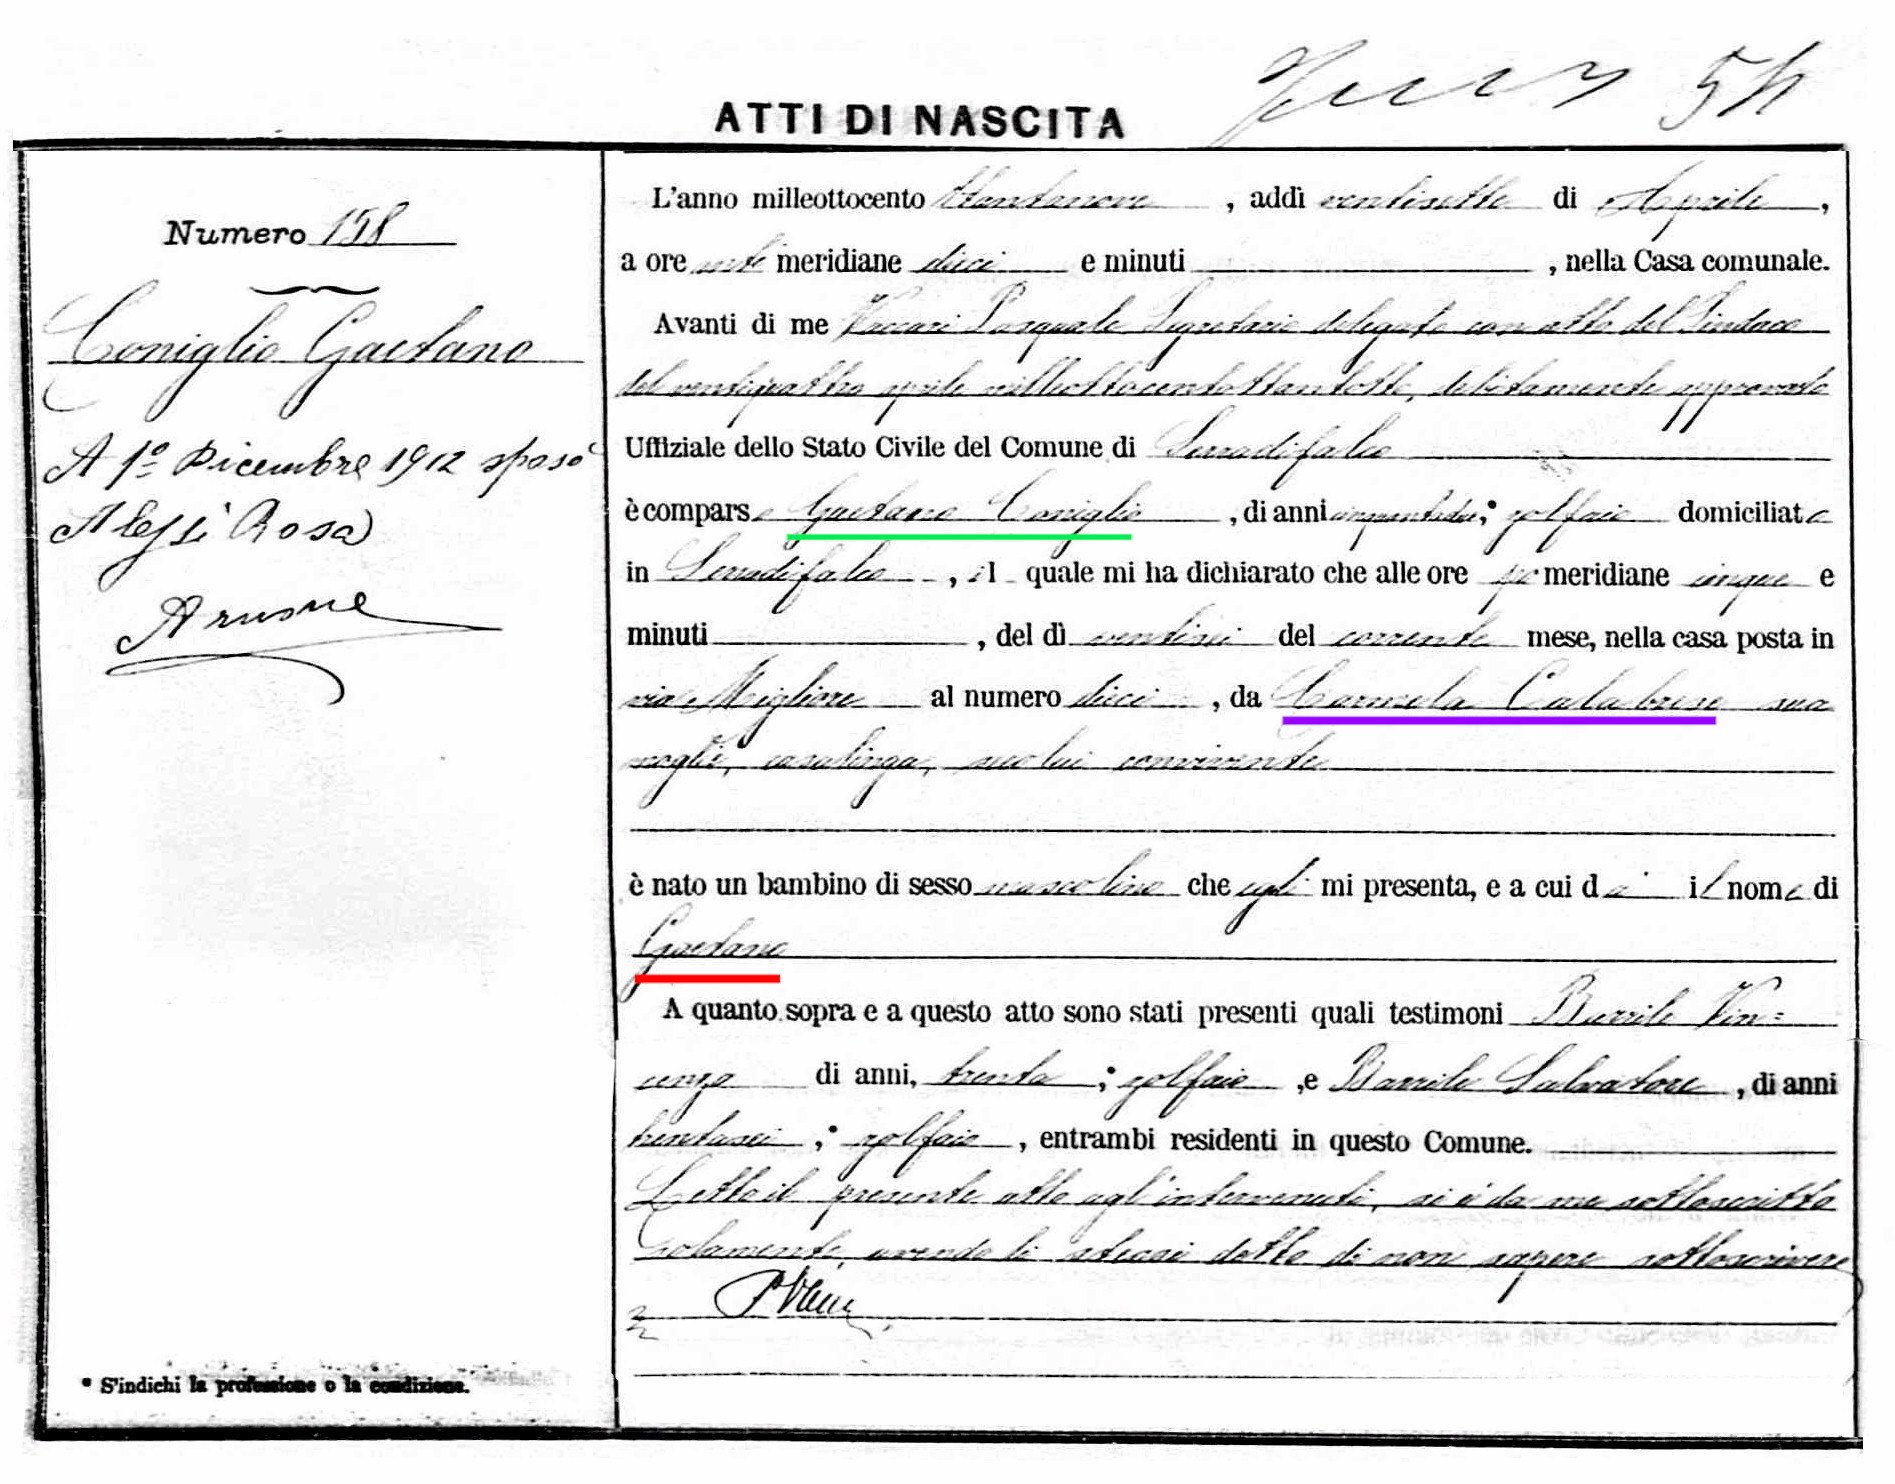 54
ATTI DI NASCITA
Numero 158
Coniglio Gaetano
A 1º Dicembre 1912 sposò
Alessi Rosa
Arnone
* S'indichi la professione o la condizione.
L'anno milleottocento ottantanove, addì ventisette di Aprile,
a ore anti meridiane dieci e minuti , nella Casa comunale.
Avanti di me Vaccari Pasquale Segretario delegato con atto del Sindaco
del ventiquattro aprile milleottocentottantotto, debitamente approvato
Uffiziale dello Stato Civile del Comune di Serradifalco
è comparso Gaetano Coniglio, di anni cinquantadue;* zolfaio domiciliato
in Serradifalco, il quale mi ha dichiarato che alle ore po meridiane cinque e
minuti , del dì ventisei del corrente mese, nella casa posta in
via Migliore al numero dieci, da Carmela Calabrese sua
moglie, casalinga, seco lui convivente
è nato un bambino di sesso mascolino che egli mi presenta, e a cui dà il nome di
Gaetano
A quanto sopra e a questo atto sono stati presenti quali testimoni Barrile Vin=
cenzo di anni, trenta;* zolfaio, e Barrile Salvatore, di anni
trentasei,* zolfaio, entrambi residenti in questo Comune.
Letto il presente atto agl'intervenuti, si è da me sottoscritto
solamente, avendo li stessi detto di non sapere sottoscrivere